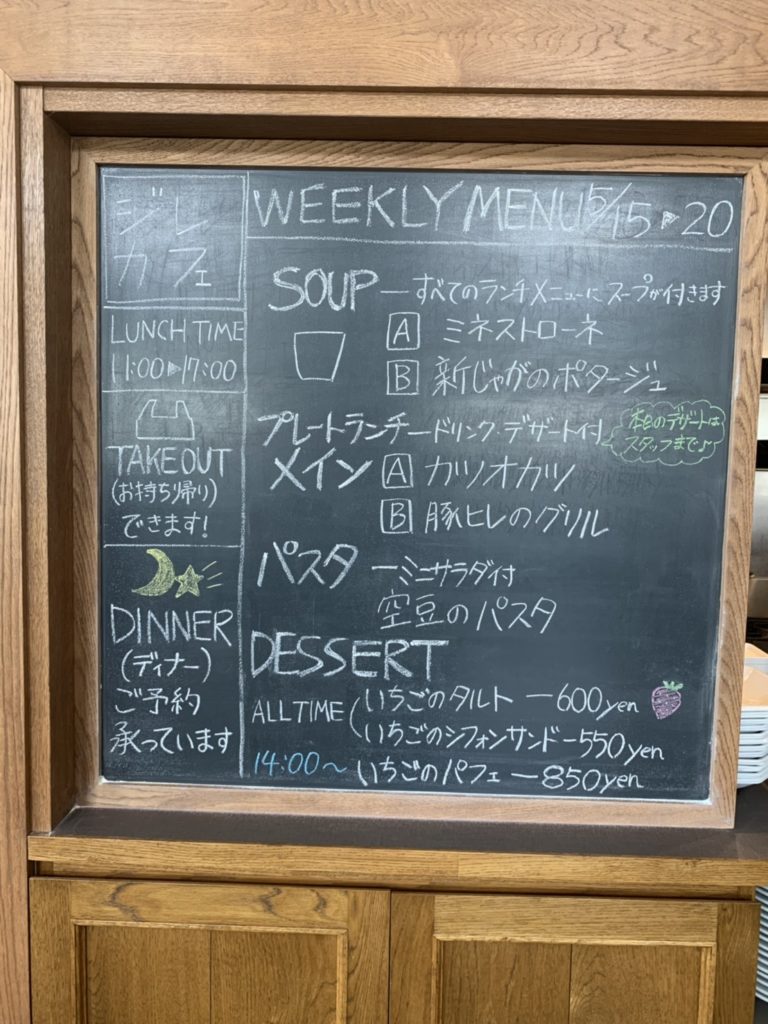 ジレ
カフェ
LUNCH TIME
11:00▶17:00
TAKEOUT
(お持ち帰り)
できます!
DINNER
(ディナー)
ご予約
承っています
WEEKLY MENU 5/15▶20
SOUP―すべてのランチメニューにスープが付きます
A ミネストローネ
B 新じゃがのポタージュ
プレートランチ―ドリンク・デザート付
本日のデザートは
スタッフまで♪
メイン A カツオカツ
B 豚ヒレのグリル
パスタ ―ミニサラダ付
空豆のパスタ
DESSERT
ALL TIME
いちごのタルト ―600yen
いちごのシフォンサンド―550yen
14:00〜 いちごのパフェ ―850yen